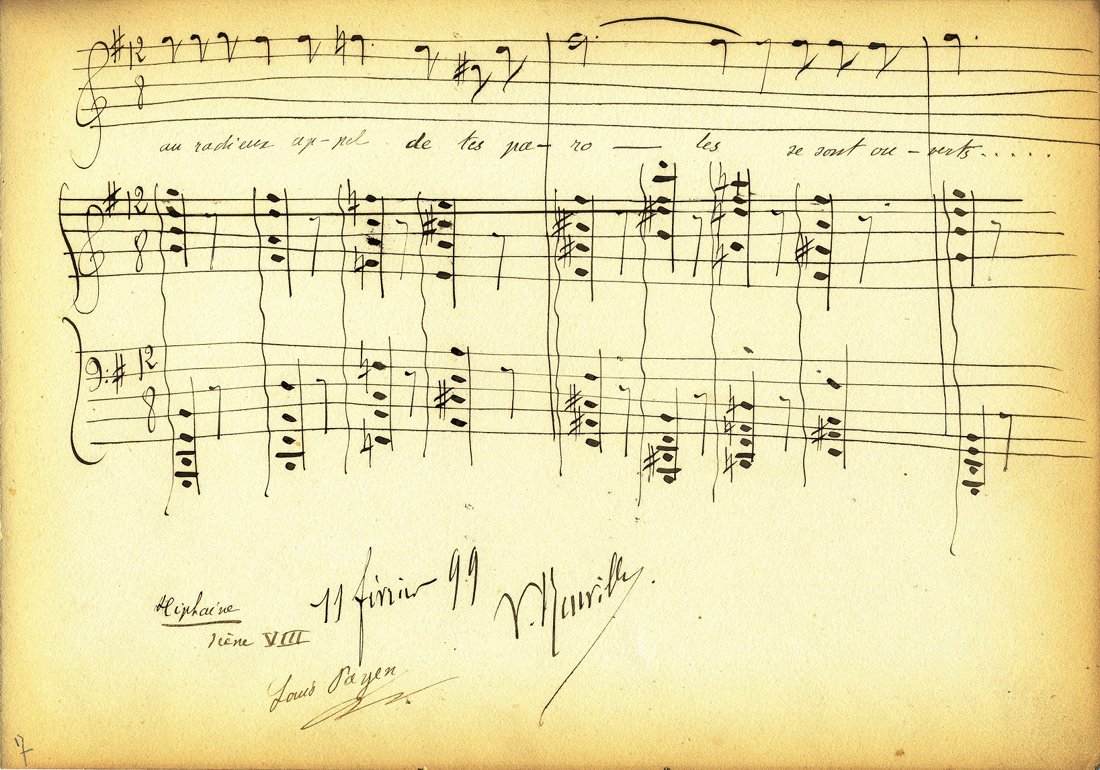 12
8
au radieux ap-pel de tes pa-ro — les se sont ou-verts.....
12
8
12
8
11 février 99
Tiphaine
scène VIII
Louis Payen
7